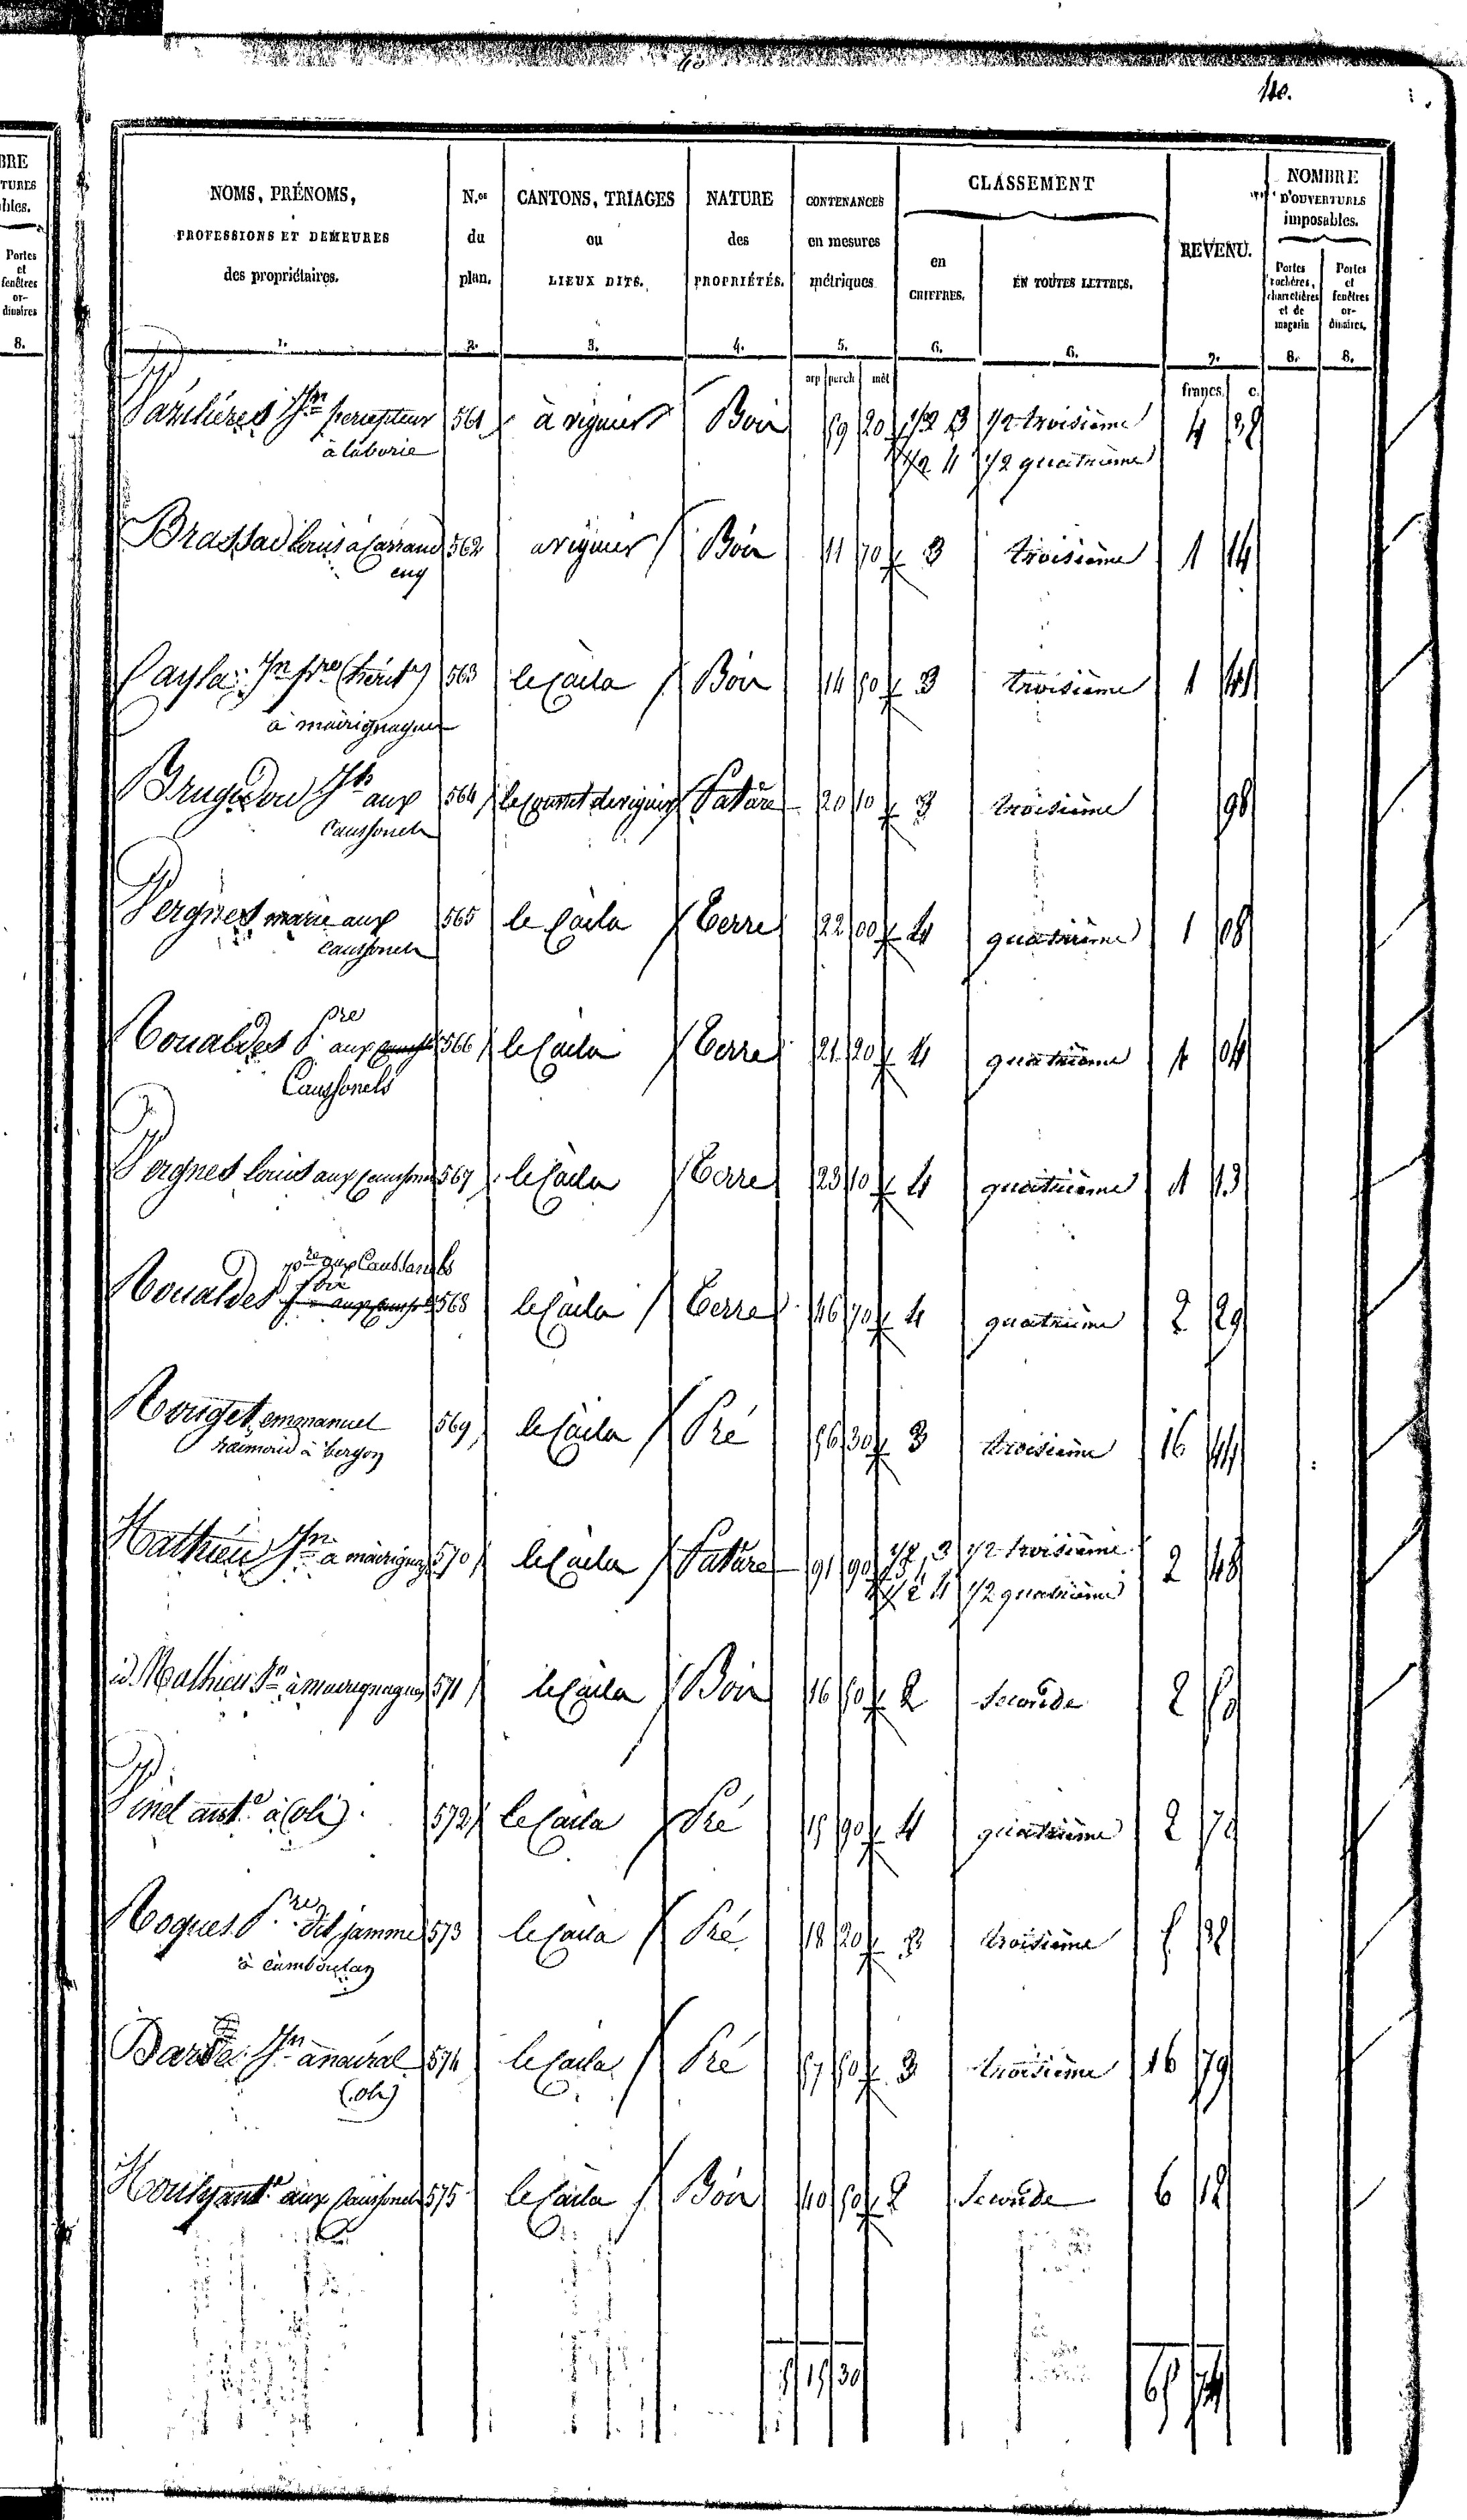 40.
BRE
TURES
bles.
Portes
et
fenêtres
or-
dinaires
8.
NOMS, PRÉNOMS,
PROFESSIONS ET DEMEURES
des propriétaires.
N.os
du
plan.
CANTONS, TRIAGES
ou
LIEUX DITS.
NATURE
des
PROPRIÉTÉS.
CONTENANCES
en mesures
métriques
CLASSEMENT
en
CHIFFRES.
EN TOUTES LETTRES.
REVENU.
NOMBRE
D'OUVERTURES
imposables.
Portes
cochères,
charretières
et de
magasin
Portes
et
fenêtres
or-
dinaires.
1. 2. 3. 4. 5. 6. 6. 7. 8. 8.
arp perch mèt francs c.
Jn percepteur 561 à viguier Bois 59 20 1/2 3 1/2 troisième 4 38
à laborie 1/2 4 1/2 quatrième
Brassac louis à 562 a viguier Bois 11 70 3 troisième 1 14
Cayla Jn pre (hérit) 563 le Caila Bois 14 50 3 troisième 1 41
à mairignagues
Brugidou Jh aux 564 Pature 20 10 3 troisième 98
Caussonels
Vergnes marie aux 565 le Caila Terre 22 00 4 quatrième 1 08
Caussonels
Roualdes P. pre aux 566 le Caila Terre 21 20 4 quatrième 1 04
Caussonels
Vergnes louis aux Caussonels 567 le Caila Terre 23 10 4 quatrième 1 13
pre aux Caussanels
Roualdes 568 le Caila Terre 46 70 4 quatrième 2 29
Rouget emmanuel 569 le Caila Pré 56 30 3 troisième 16 44
raimond à bergon
Mathieu Jn à 570 le Caila Pature 91 90 1/2 3 1/2 troisième 2 48
1/2 4 1/2 quatrième
id Mathieu Jn à mairignagues 571 le Caila Bois 16 50 2 Seconde 2 50
Pinel ant.e à (oli) 572 le Caila Pré 15 90 4 quatrième 2 70
Roques P.re dit jamme 573 le Caila Pré 18 20 3 troisième 5 32
à camboulan
Jn 574 le Caila Pré 57 50 3 troisième 16 79
(oli)
ant.e aux Caussonels 575 le Caila Bois 40 50 2 Seconde 6 12
5 15 30 65 74